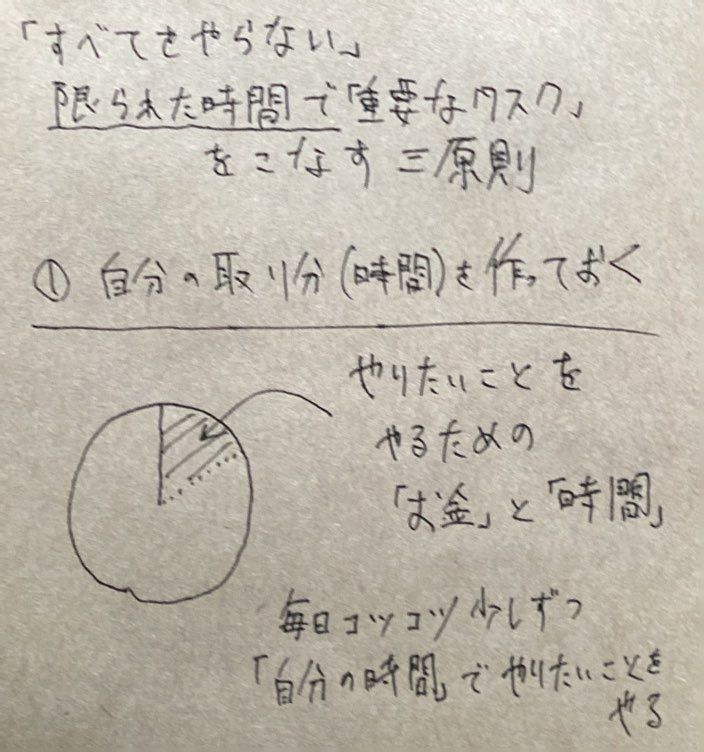 「すべてをやらない」
限られた時間で「重要なタスク」
をこなす三原則
① 自分の取り分(時間)を作っておく
やりたいことを
やるための
「お金」と「時間」
毎日コツコツ少しずつ
「自分の時間」でやりたいことを
やる